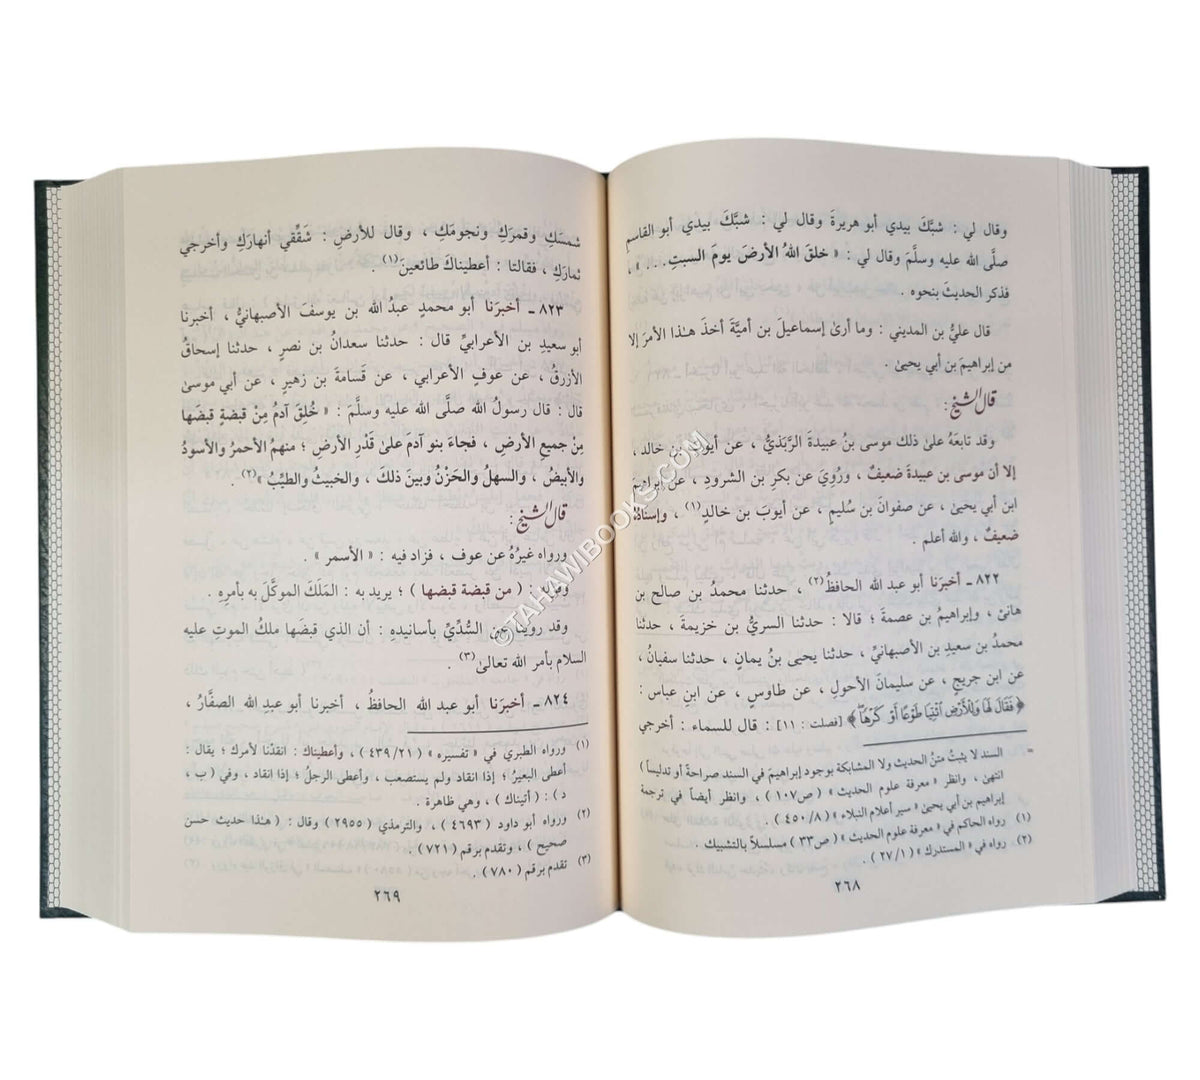 وقال لي : شبَّكَ بيدي أبو هريرةَ وقال لي : شبَّكَ بيدي أبو القاسم
صلَّى الله عليه وسلَّمَ وقال لي : « خلقَ اللهُ الأرضَ يومَ السبتِ . . . » ،
فذكر الحديثَ بنحوه .
قال عليُّ بن المديني : وما أرىٰ إسماعيلَ بن أميَّةَ أخذَ هـٰذا الأمرَ إلا
من إبراهيمَ بن أبي يحيىٰ .
قال الشيخ :
وقد تابعَهُ علىٰ ذلك موسى بنُ عبيدةَ الرَّبَذيُّ ، عن أيوبَ بن خالد ،
إلا أن موسى بن عبيدةَ ضعيفٌ ، ورُوِيَ عن بكرِ بن الشرودِ ، عن إبراهيمَ
ابن أبي يحيىٰ ، عن صفوانَ بن سُليمٍ ، عن أيوبَ بن خالدٍ(١) ، وإسنادُهُ
ضعيفٌ ، والله أعلم .
٨٢٢ ـ أخبرَنا أبو عبد الله الحافظُ(٢) ، حدثنا محمدُ بن صالحِ بن
هانئ ، وإبراهيمُ بن عصمةَ ؛ قالا : حدثنا السريُّ بن خزيمةَ ، حدثنا
محمدُ بن سعيدِ بن الأصبهانيِّ ، حدثنا يحيى بنُ يمانٍ ، حدثنا سفيانُ ،
عن ابن جريجٍ ، عن سليمانَ الأحولِ ، عن طاوسٍ ، عن ابنِ عباس :
﴿فَقَالَ لَهَا وَلِلْأَرْضِ ٱئْتِيَا طَوْعًا أَوْ كَرْهًا﴾ [فصلت : ١١] : قال للسماء : أخرجي
= السند لا يثبتُ متنُ الحديث ولا المشابكة بوجود إبراهيمَ في السند صراحةً أو تدليساً )
انتهىٰ ، وانظر « معرفة علوم الحديث » ( ص١٠٧ ) ، وانظر أيضاً في ترجمة
إبراهيم بن أبي يحيىٰ « سير أعلام النبلاء » ( ٤٥٠/٨ ) .
(١) رواه الحاكم في « معرفة علوم الحديث » ( ص٣٣ ) مسلسلاً بالتشبيك .
(٢) رواه في « المستدرك » ( ٢٧/١ ) .
٢٦٨
شمسَكِ وقمرَكِ ونجومَكِ ، وقال للأرضِ : شَقِّقي أنهارَكِ وأخرجي
ثمارَكِ ، فقالتا : أعطيناكَ طائعينَ(١) .
٨٢٣ ـ أخبرَنا أبو محمدٍ عبدُ الله بن يوسفَ الأصبهانيُّ ، أخبرنا
أبو سعيدِ بن الأعرابيِّ قال : حدثنا سعدانُ بن نصرٍ ، حدثنا إسحاقُ
الأزرقُ ، عن عوفٍ الأعرابي ، عن قَسامةَ بن زهيرٍ ، عن أبي موسىٰ
قال : قال رسولُ الله صلَّى الله عليه وسلَّمَ : « خُلِقَ آدمُ مِنْ قبضةٍ قبضَها
مِن جميعِ الأرضِ ، فجاءَ بنو آدمَ علىٰ قَدْرِ الأرضِ ؛ منهمُ الأحمرُ والأسودُ
والأبيضُ ، والسهلُ والحَزْنُ وبينَ ذلكَ ، والخبيثُ والطيِّبُ »(٢) .
قال الشيخ :
ورواه غيرُهُ عن عوف ، فزاد فيه : « الأسمر » .
وقولُه : ( من قبضة قبضها ) ؛ يريد به : المَلَكَ الموكَّلَ به بأمرِهِ .
وقد روينا عن السُّدِّيِّ بأسانيدِهِ : أن الذي قبضَها ملكُ الموتِ عليه
السلام بأمر الله تعالىٰ(٣) .
٨٢٤ ـ أخبرَنا أبو عبد الله الحافظُ ، أخبرنا أبو عبدِ الله الصفَّارُ ،
(١) ورواه الطبري في « تفسيره » ( ٤٣٩/٢١ ) ، وأعطيناك : انقدْنا لأمرك ؛ يقال :
أعطى البعيرُ ؛ إذا انقاد ولم يستصعب ، وأعطى الرجلُ ؛ إذا انقاد ، وفي ( ب ،
د ) : ( أتيناك ) ، وهي ظاهرة .
(٢) ورواه أبو داود ( ٤٦٩٣ ) ، والترمذي ( ٢٩٥٥ ) وقال : ( هـٰذا حديث حسن
صحيح ) ، وتقدم برقم ( ٧٢١ ) .
(٣) تقدم برقم ( ٧٨٠ ) .
٢٦٩
©TAHAWIBOOKS.COM